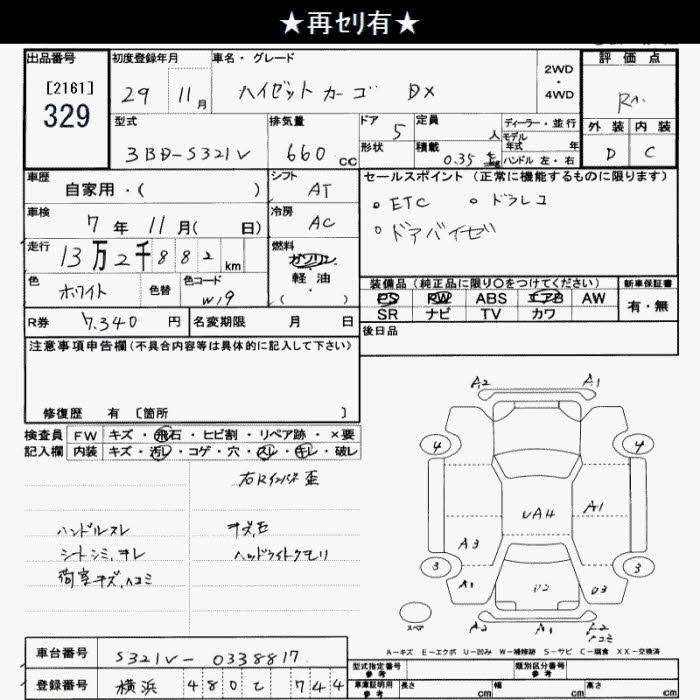 ★再ｾﾘ有★
出品番号
[2161]
329
初度登録年月
29 11月
車名・グレード
ハイゼットカーゴ DX
2WD
・
4WD
評価点
型式
3BD-S321V
排気量
660 CC
ドア
5
形状
定員
人
積載
0.35
ディーラー・並行
モデル
年式 年
ハンドル 左・右
外装 内装
D C
車歴
自家用・( )
シフト
AT
車検
7年 11月( 日)
冷房
AC
走行
13万2千882km
燃料
ガソリン
軽・油
( )
色
ホワイト
色替
色コード
W19
セールスポイント (正常に機能するものに限ります)
。ETC 。ドラレコ
。ドアバイザ
装備品(純正品に限り○をつけてください)
新車保証書
PS PW ABS エアB AW
有・無
SR ナビ TV カワ
R券
7.340円
名変期限 月 日
後日品
注意事項申告欄(不具合内容等は具体的に記入して下さい)
修復歴 有 〔箇所 〕
検査員
記入欄
FW キズ・飛石・ヒビ割・リペア跡・×要
内装 キズ・汚レ・コゲ・穴・スレ・キレ・破レ
ハンドルスレ
シートシミ、キレ
荷室キズ、ヘコミ
キズ、E
ヘッドライトクモリ
A2 A1
4 4
UA4 A1
A3
3 3
A1 U2 U3
スペア
A2 A1
ヘコミ
A-キズ E-エクボ U-凹み W-補修跡 S-サビ C-腐食 XX-交換済
車台番号
S321V- 0338817
登録番号
横浜 480 744
型式指定番号
参考
類別区分番号
参考
車庫証明用
参考
長さ cm
幅 cm
高さ cm